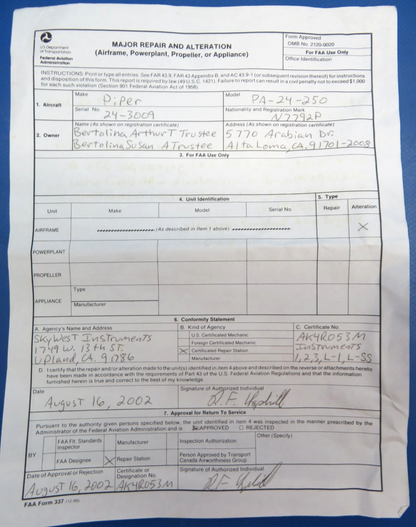 US Department
of Transportation
Federal Aviation
Administration
MAJOR REPAIR AND ALTERATION
(Airframe, Powerplant, Propeller, or Appliance)
Form Approved
OMB No. 2120-0020
For FAA Use Only
Office Identification
INSTRUCTIONS: Print or type all entries. See FAR 43.9, FAR 43 Appendix B, and AC 43.9-1 (or subsequent revision thereof) for instructions
and disposition of this form. This report is required by law (49 U.S.C. 1421). Failure to report can result in a civil penalty not to exceed $1,000
for each such violation (Section 901 Federal Aviation Act of 1958)
1. Aircraft
Make
Piper
Model
PA-24-250
Serial No.
24-3009
Nationality and Registration Mark
N7792P
2. Owner
Name (As shown on registration certificate)
Bertolina Arthur T Trustee
Bertolina Susan A Trustee
Address (As shown on registration certificate)
5770 Arabian Dr.
Alta Loma, CA, 91701-2008
3. For FAA Use Only
4. Unit Identification
5. Type
Unit
Make
Model
Serial No.
Repair
Alteration
AIRFRAME
(As described in Item 1 above)
X
POWERPLANT
PROPELLER
APPLIANCE
Type
Manufacturer
6. Conformity Statement
A. Agency's Name and Address
SkyWest Instruments
1749 W 13th ST.
Upland, CA. 91786
B. Kind of Agency
U.S. Certificated Mechanic
Foreign Certificated Mechanic
X Certificated Repair Station
Manufacturer
C. Certificate No.
AK4R053M
Instruments
1,2,3, L-1, L-SS
D. I certify that the repair and/or alteration made to the unit(s) identified in item 4 above and described on the reverse or attachments hereto
have been made in accordance with the requirements of Part 43 of the U.S. Federal Aviation Regulations and that the information
furnished herein is true and correct to the best of my knowledge.
Date
August 16, 2002
Signature of Authorized Individual
7. Approval for Return To Service
Pursuant to the authority given persons specified below, the unit identified in item 4 was inspected in the manner prescribed by the
Administrator of the Federal Aviation Administration and is
APPROVED
REJECTED
BY
FAA Flt. Standards
Inspector
Manufacturer
Inspection Authorization
Other (Specify)
FAA Designee
X Repair Station
Person Approved by Transport
Canada Airworthiness Group
Date of Approval or Rejection
August 16, 2002
Certificate or
Designation No.
AK4R053M
Signature of Authorized Individual
FAA Form 337